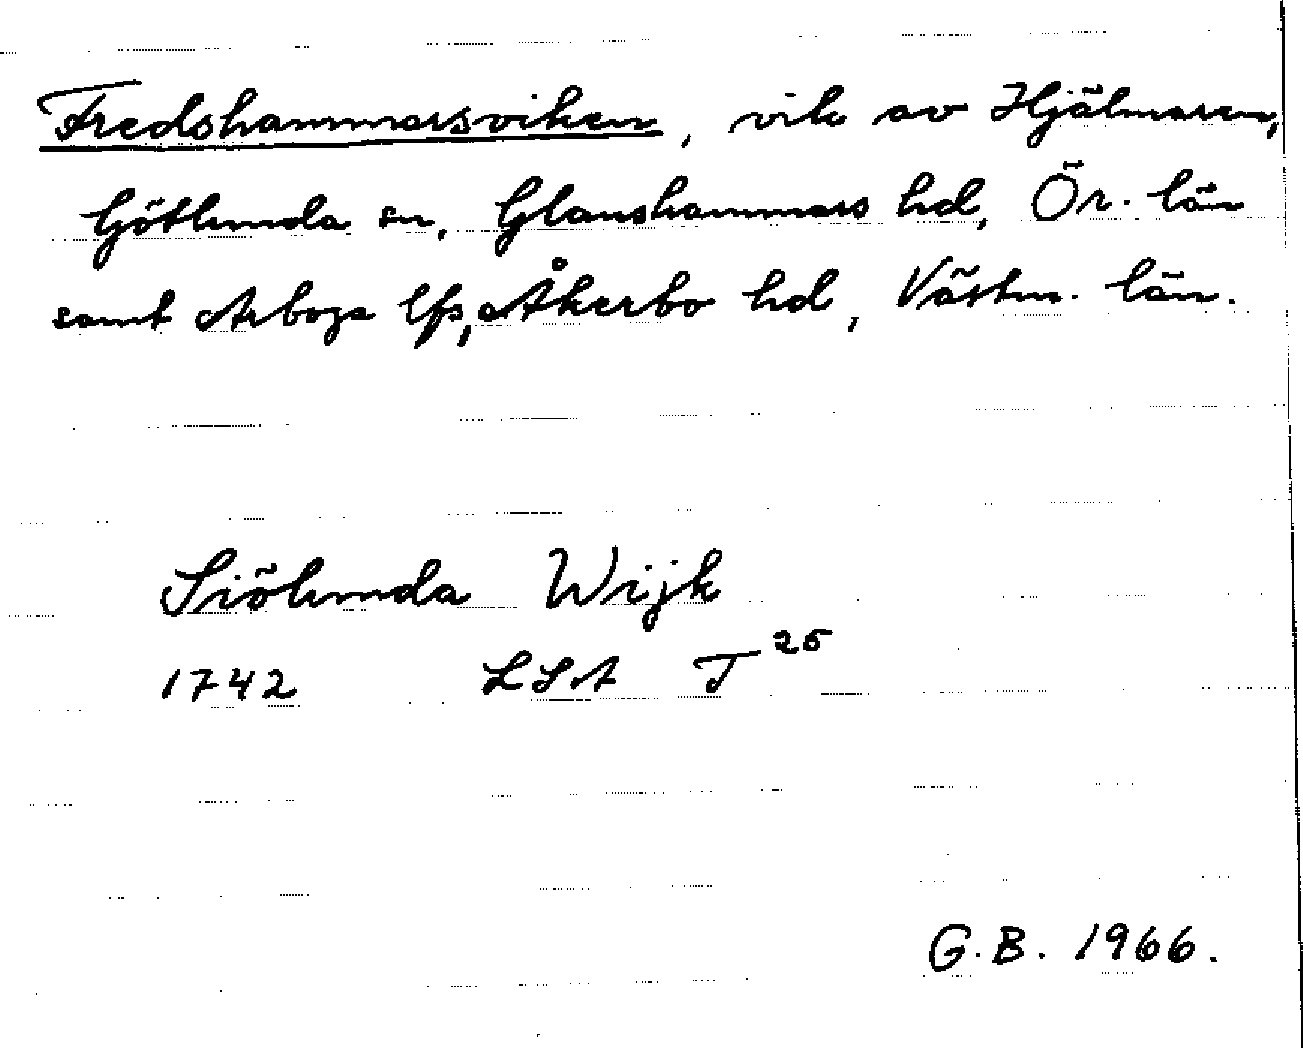 Fredshammarsviken, vik av Hjälmaren,
Götlunda sn, Glanshammars hd, Ör. län
samt Arboga lfs, Åkerbo hd, Västm. län.
Siölunda Wijk
1742 LSA T 25
G.B. 1966.